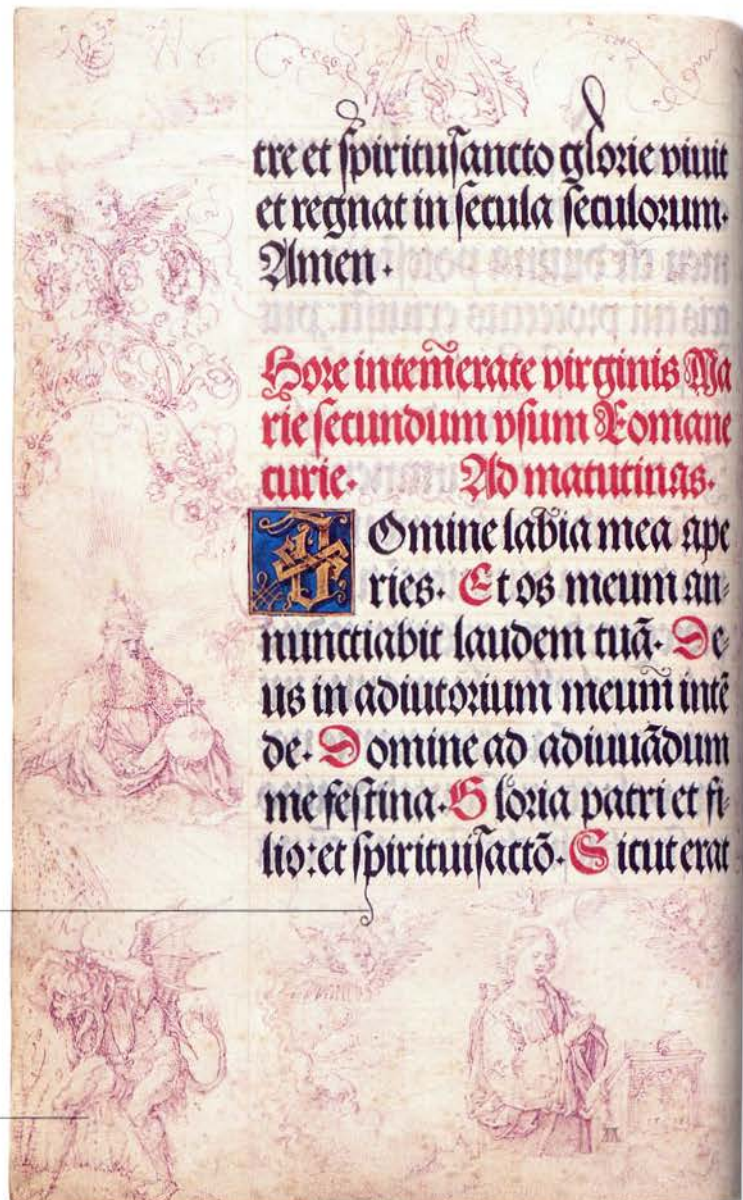 tre et spiritusancto glorie viuit
et regnat in secula seculorum.
Amen.
Hore intem̃erate virginis Ma
rie secundum vsum Romane
curie. Ad matutinas.
Domine labia mea ape
ries. Et os meum an-
nunctiabit laudem tuã. De
us in adiutorium meum̃ intẽ
de. Domine ad adiuuãdum
me festina. Gloria patri et fi-
lio: et spirituisactõ. Sicut erat